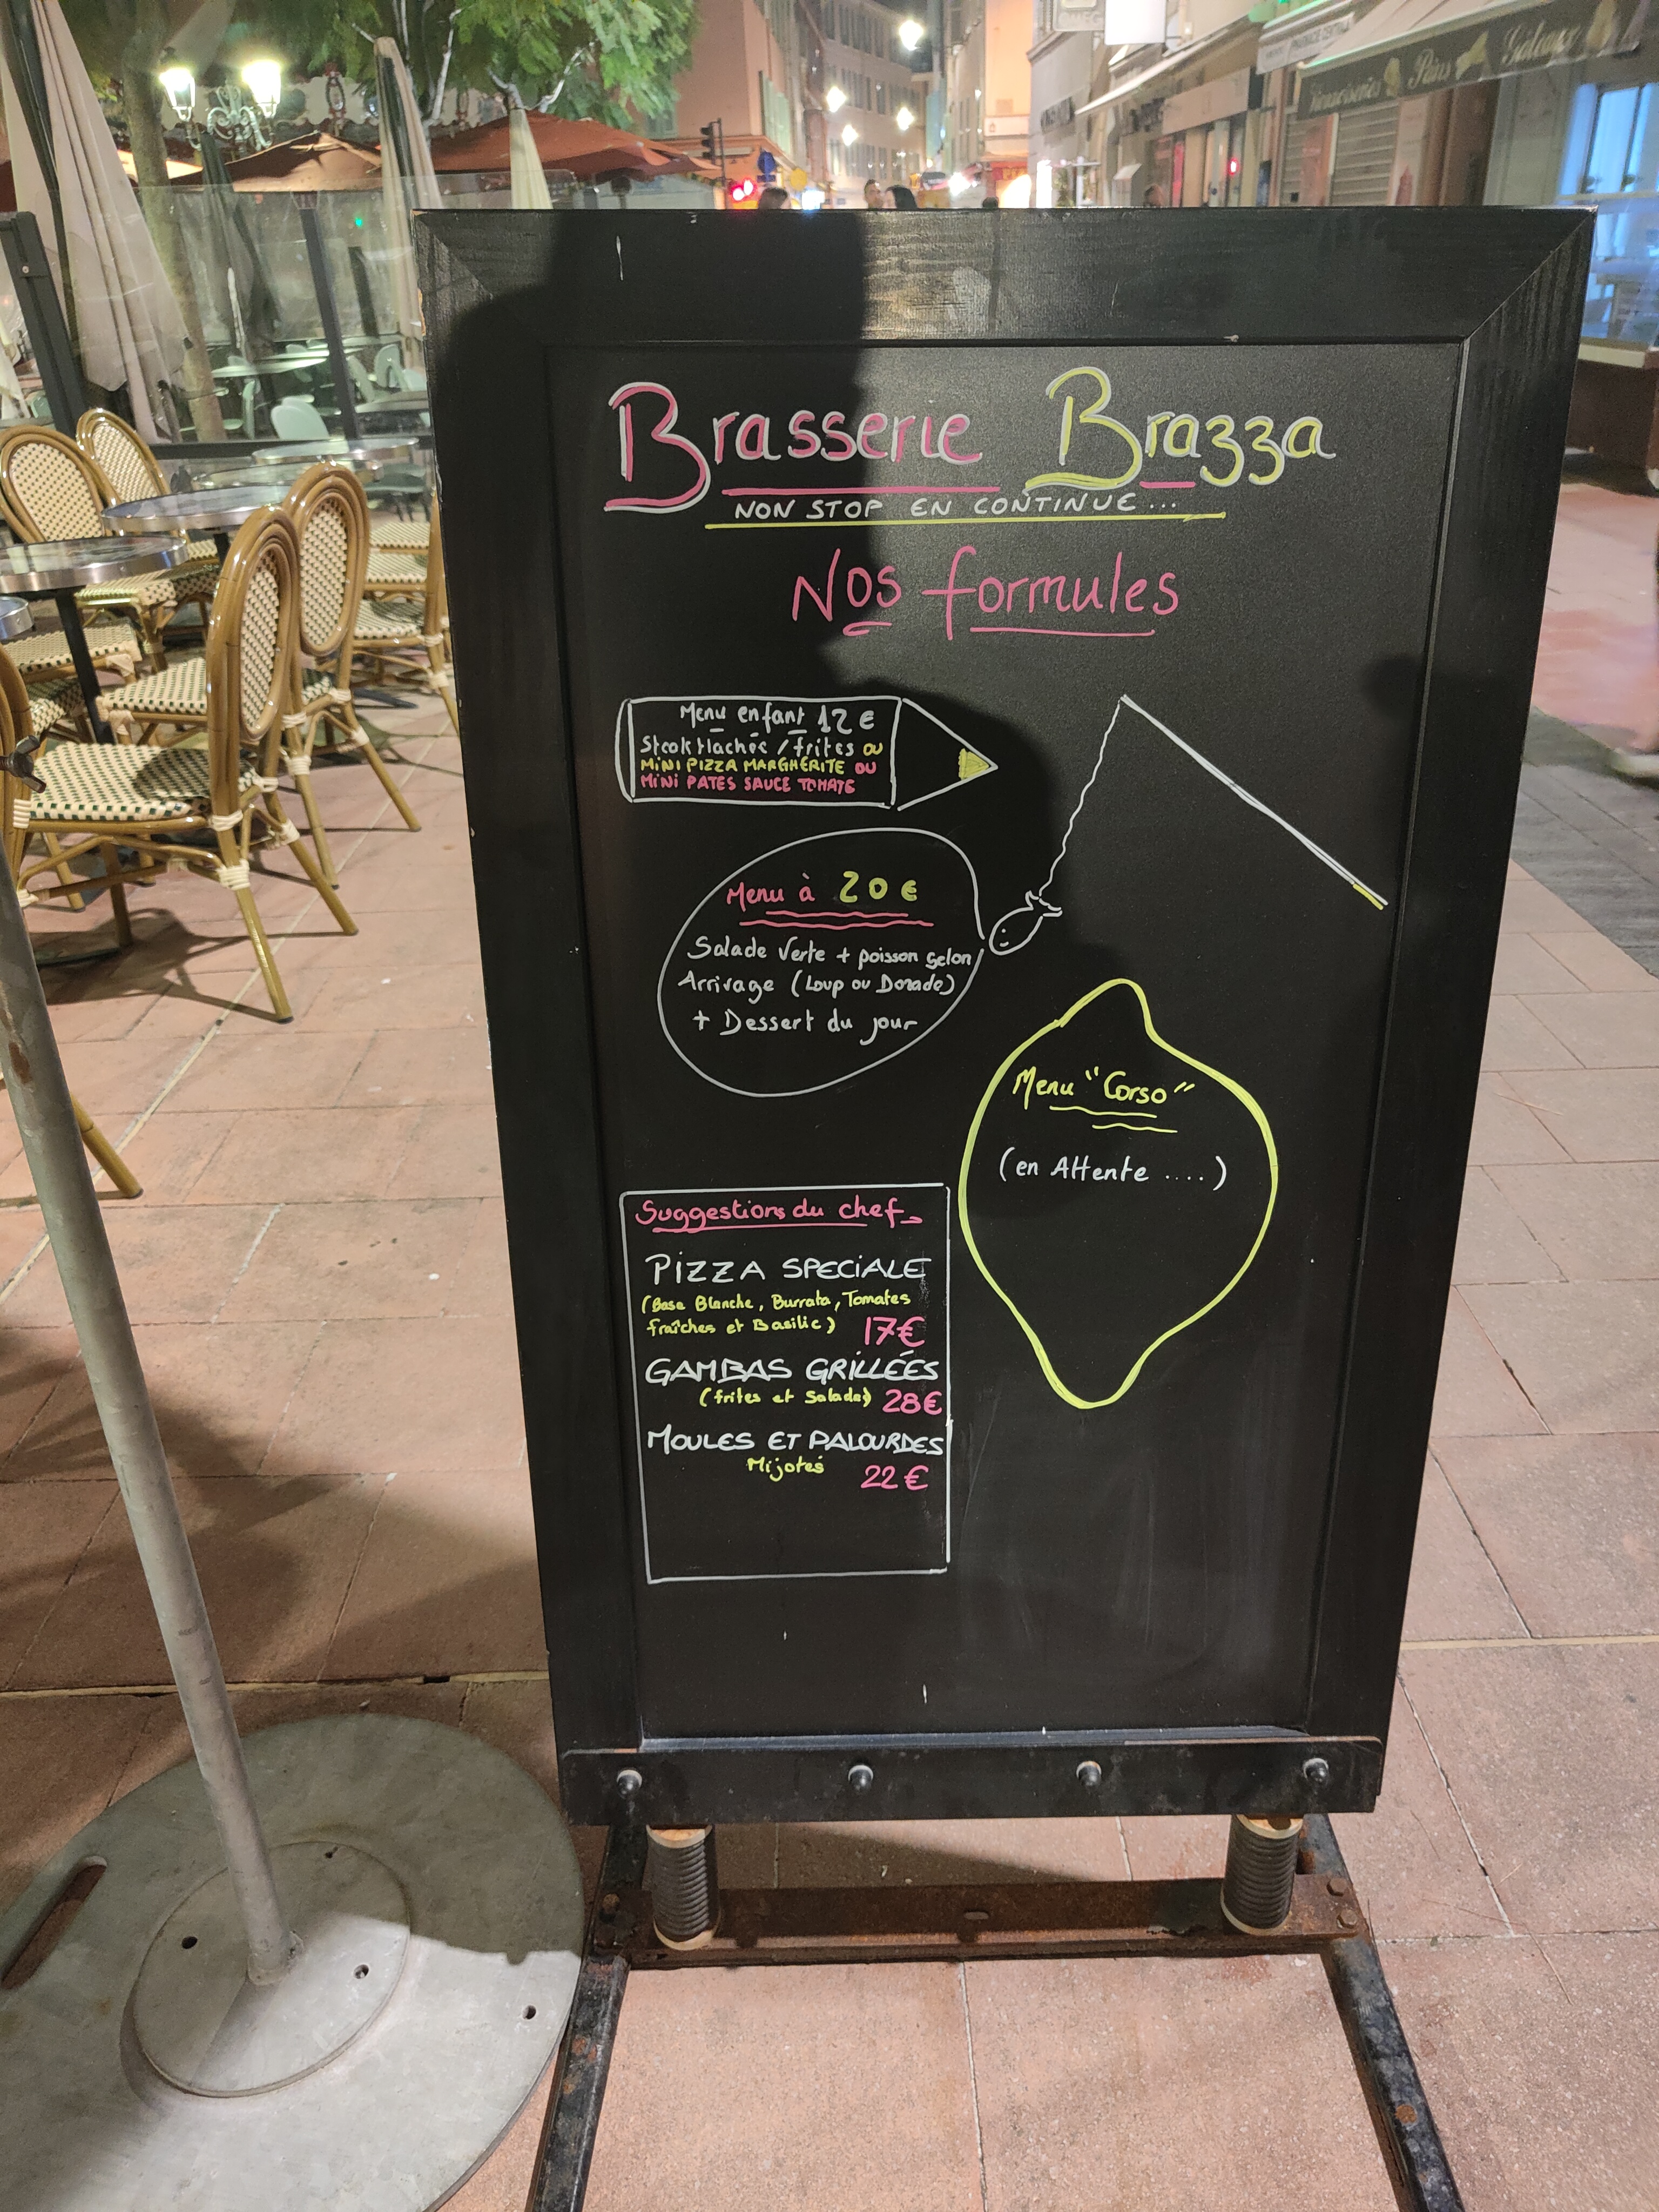 Pains Gâteaux
Brasserie Brazza
NON STOP EN CONTINUE...
Nos formules
Menu enfant 12 €
Steak Hachée / frites ou
MiNi PiZZA MARGHERITE OU
MiNi PATES SAUCE TOMATE
Menu à 20 €
Salade Verte + poisson selon
Arrivage (Loup ou Dorade)
+ Dessert du jour
Menu "Corso"
(en Attente ....)
Suggestions du chef
PiZZA SPECiALE
(Base Blanche, Burrata, Tomates
fraîches et Basilic) 17€
GAMBAS GRILLÉES
(frites et Salade) 28€
MOULES ET PALOURDES
Mijotés 22€